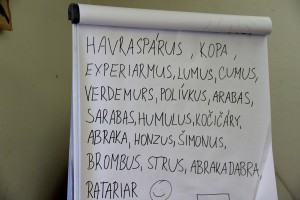 HAVRASPÁRUS, KOPA,
EXPERIARMUS, LUMUS, CUMUS,
VERDEMURS, POLÍVKUS, ARABAS,
SARABAS, HUMULUS, KOČIČÁRY,
ABRAKA, HONZUS, ŠIMONUS,
BROMBUS, STRUS, ABRAKADABRA,
RATARIAR